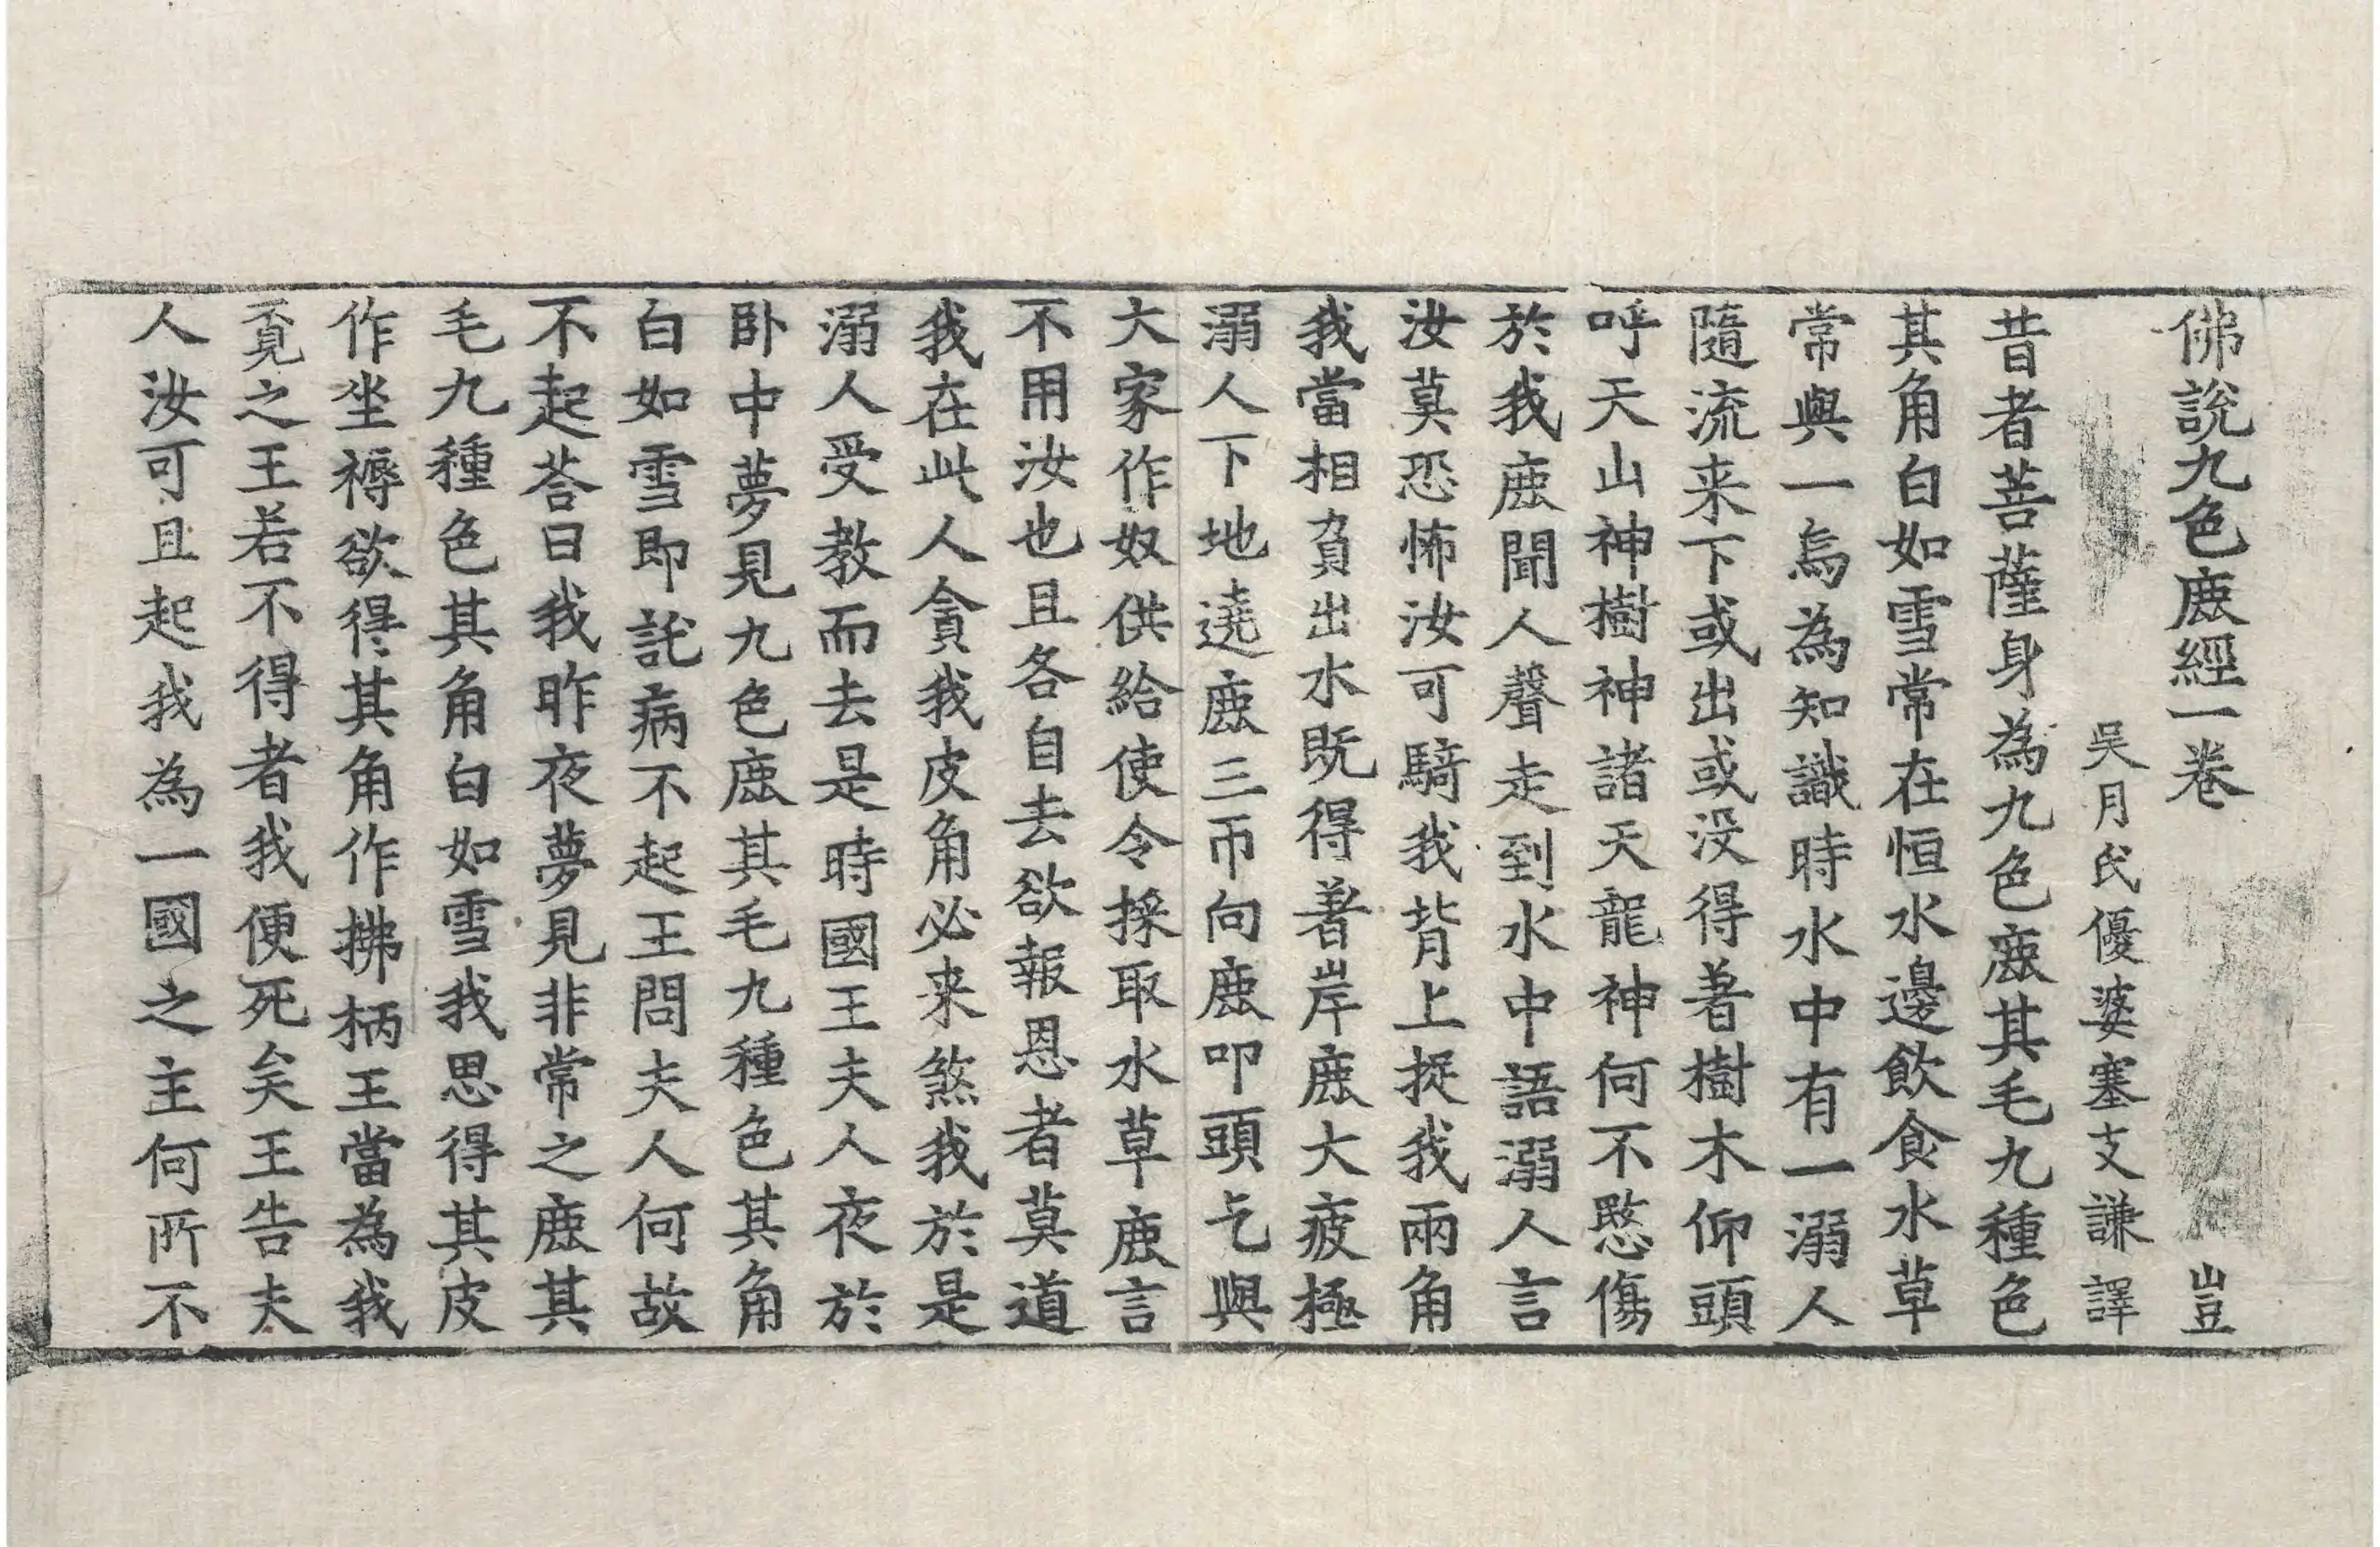 佛說九色鹿經一卷 豈
吳月氏優婆塞支謙譯
昔者菩薩身為九色鹿其毛九種色
其角白如雪常在恒水邊飲食水草
常與一烏為知識時水中有一溺人
隨流来下或出或没得著樹木仰頭
呼天山神樹神諸天龍神何不愍傷
於我鹿聞人聲走到水中語溺人言
汝莫恐怖汝可騎我背上捉我兩角
我當相負出水既得著岸鹿大疲極
溺人下地遶鹿三帀向鹿叩頭乞與
大家作奴供給使令採取水草鹿言
不用汝也且各自去欲報恩者莫道
我在此人貪我皮角必来煞我於是
溺人受教而去是時國王夫人夜於
卧中夢見九色鹿其毛九種色其角
白如雪即託病不起王問夫人何故
不起荅曰我昨夜夢見非常之鹿其
毛九種色其角白如雪我思得其皮
作坐褥欲得其角作拂柄王當為我
覔之王若不得者我便死矣王告夫
人汝可且起我為一國之主何所不